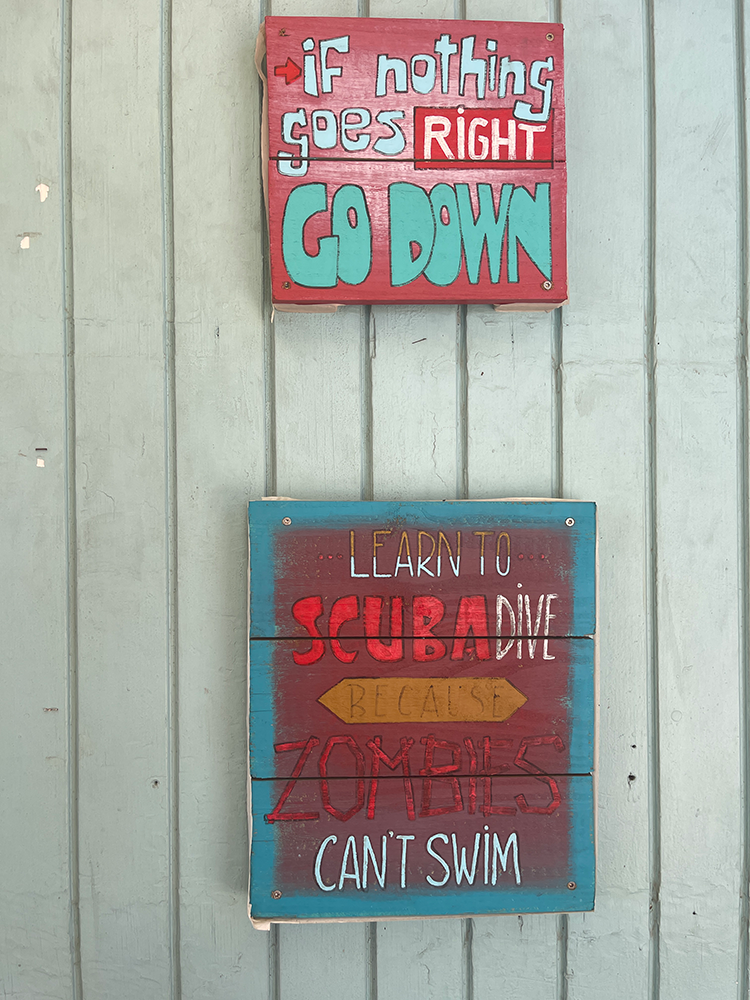 if nothing
goes RiGHT
GO DOWN
LEARN TO
SCUBA DiVE
BECAUSE
ZOMBIES
CAN'T SWiM